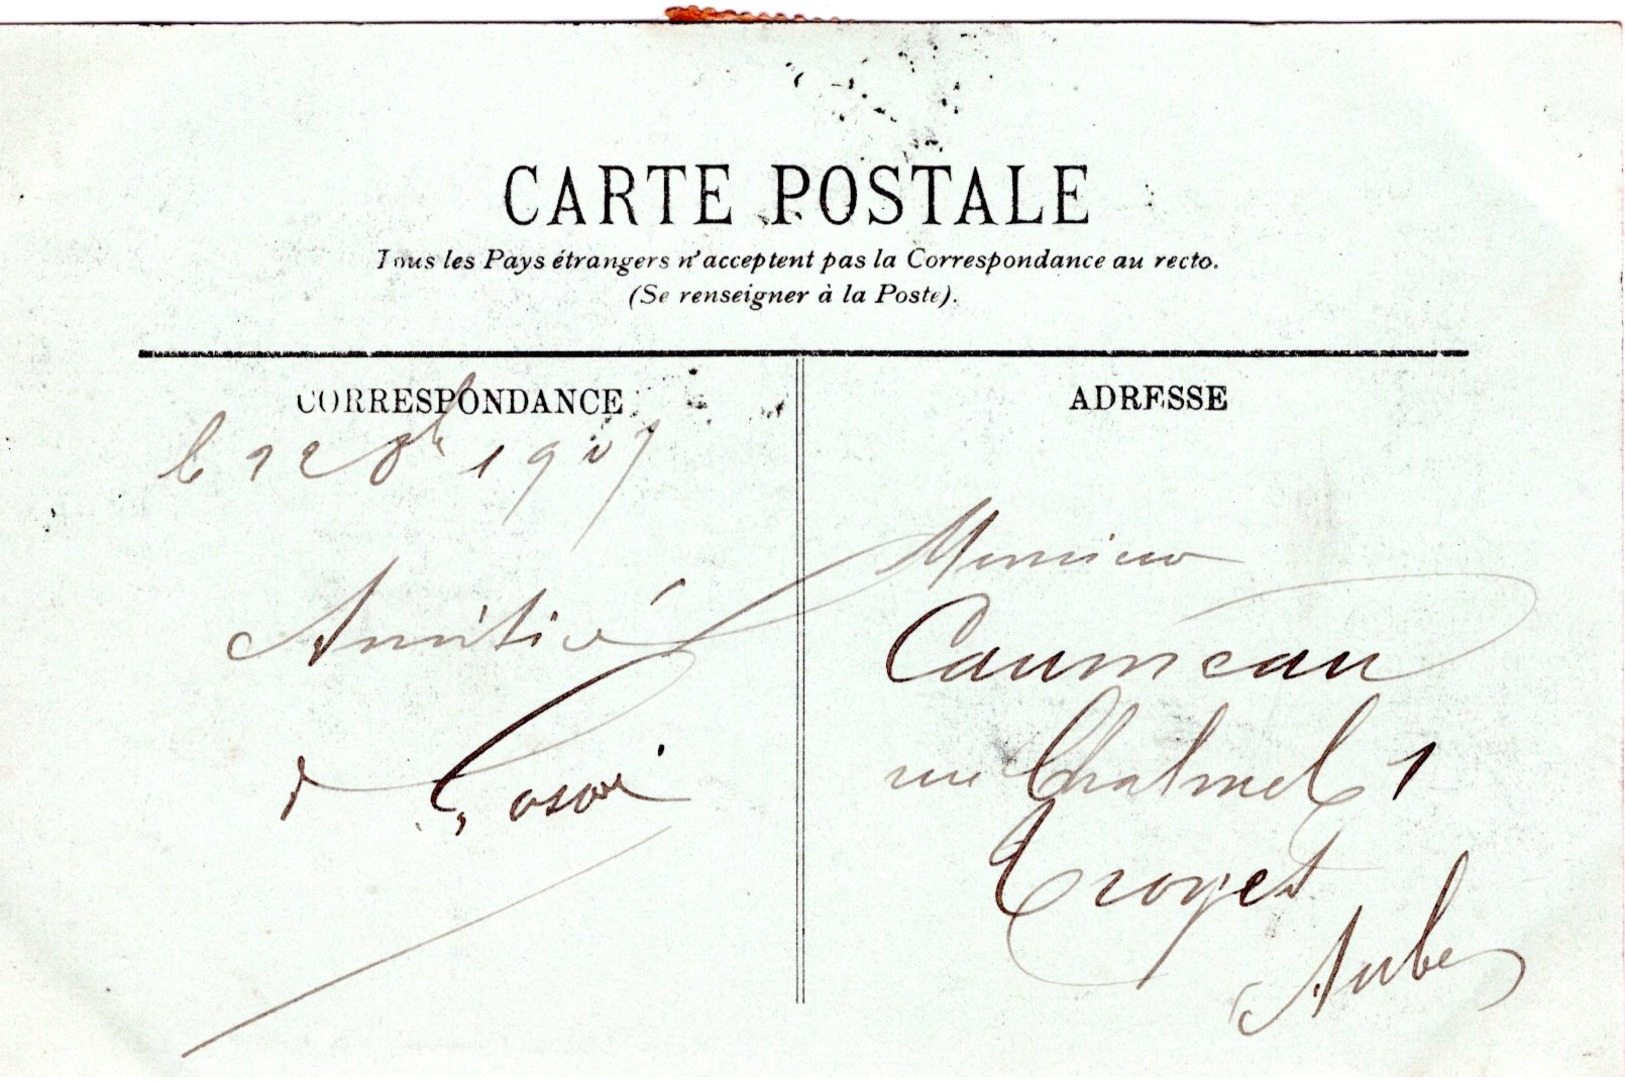 CARTE POSTALE
Tous les Pays étrangers n'acceptent pas la Correspondance au recto.
(Se renseigner à la Poste).
CORRESPONDANCE
le 8bre 1907
Amitié
ADRESSE
Monsieur
Caumeau
rue Chalmel 1
Troyes
Aube